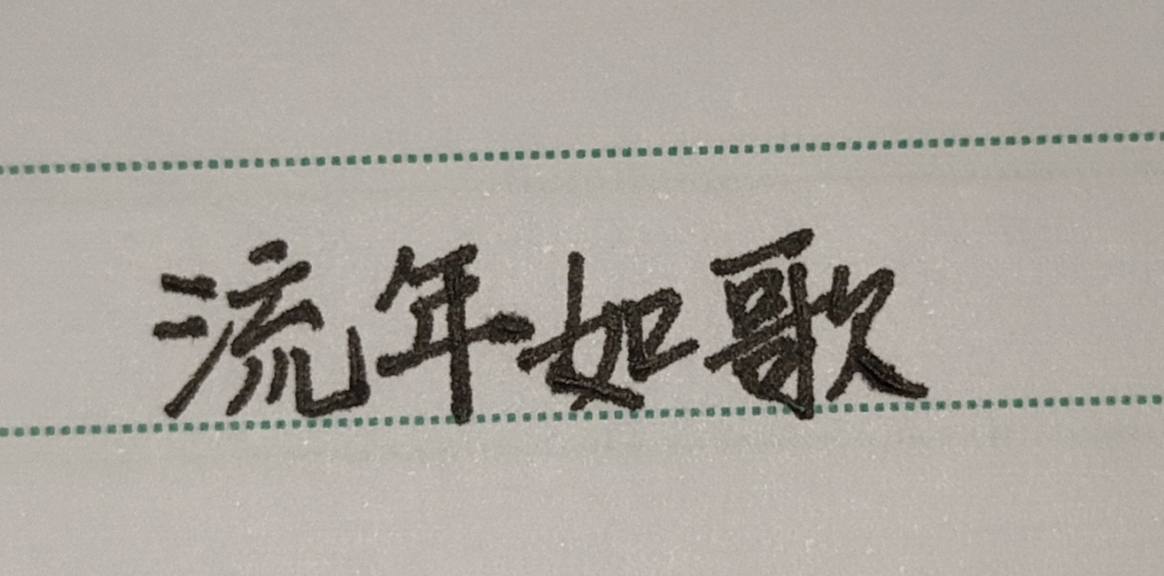 流年如歌